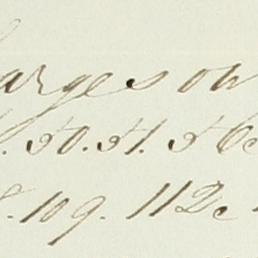 arges on
. 50. 51. 56
. 109. 112.